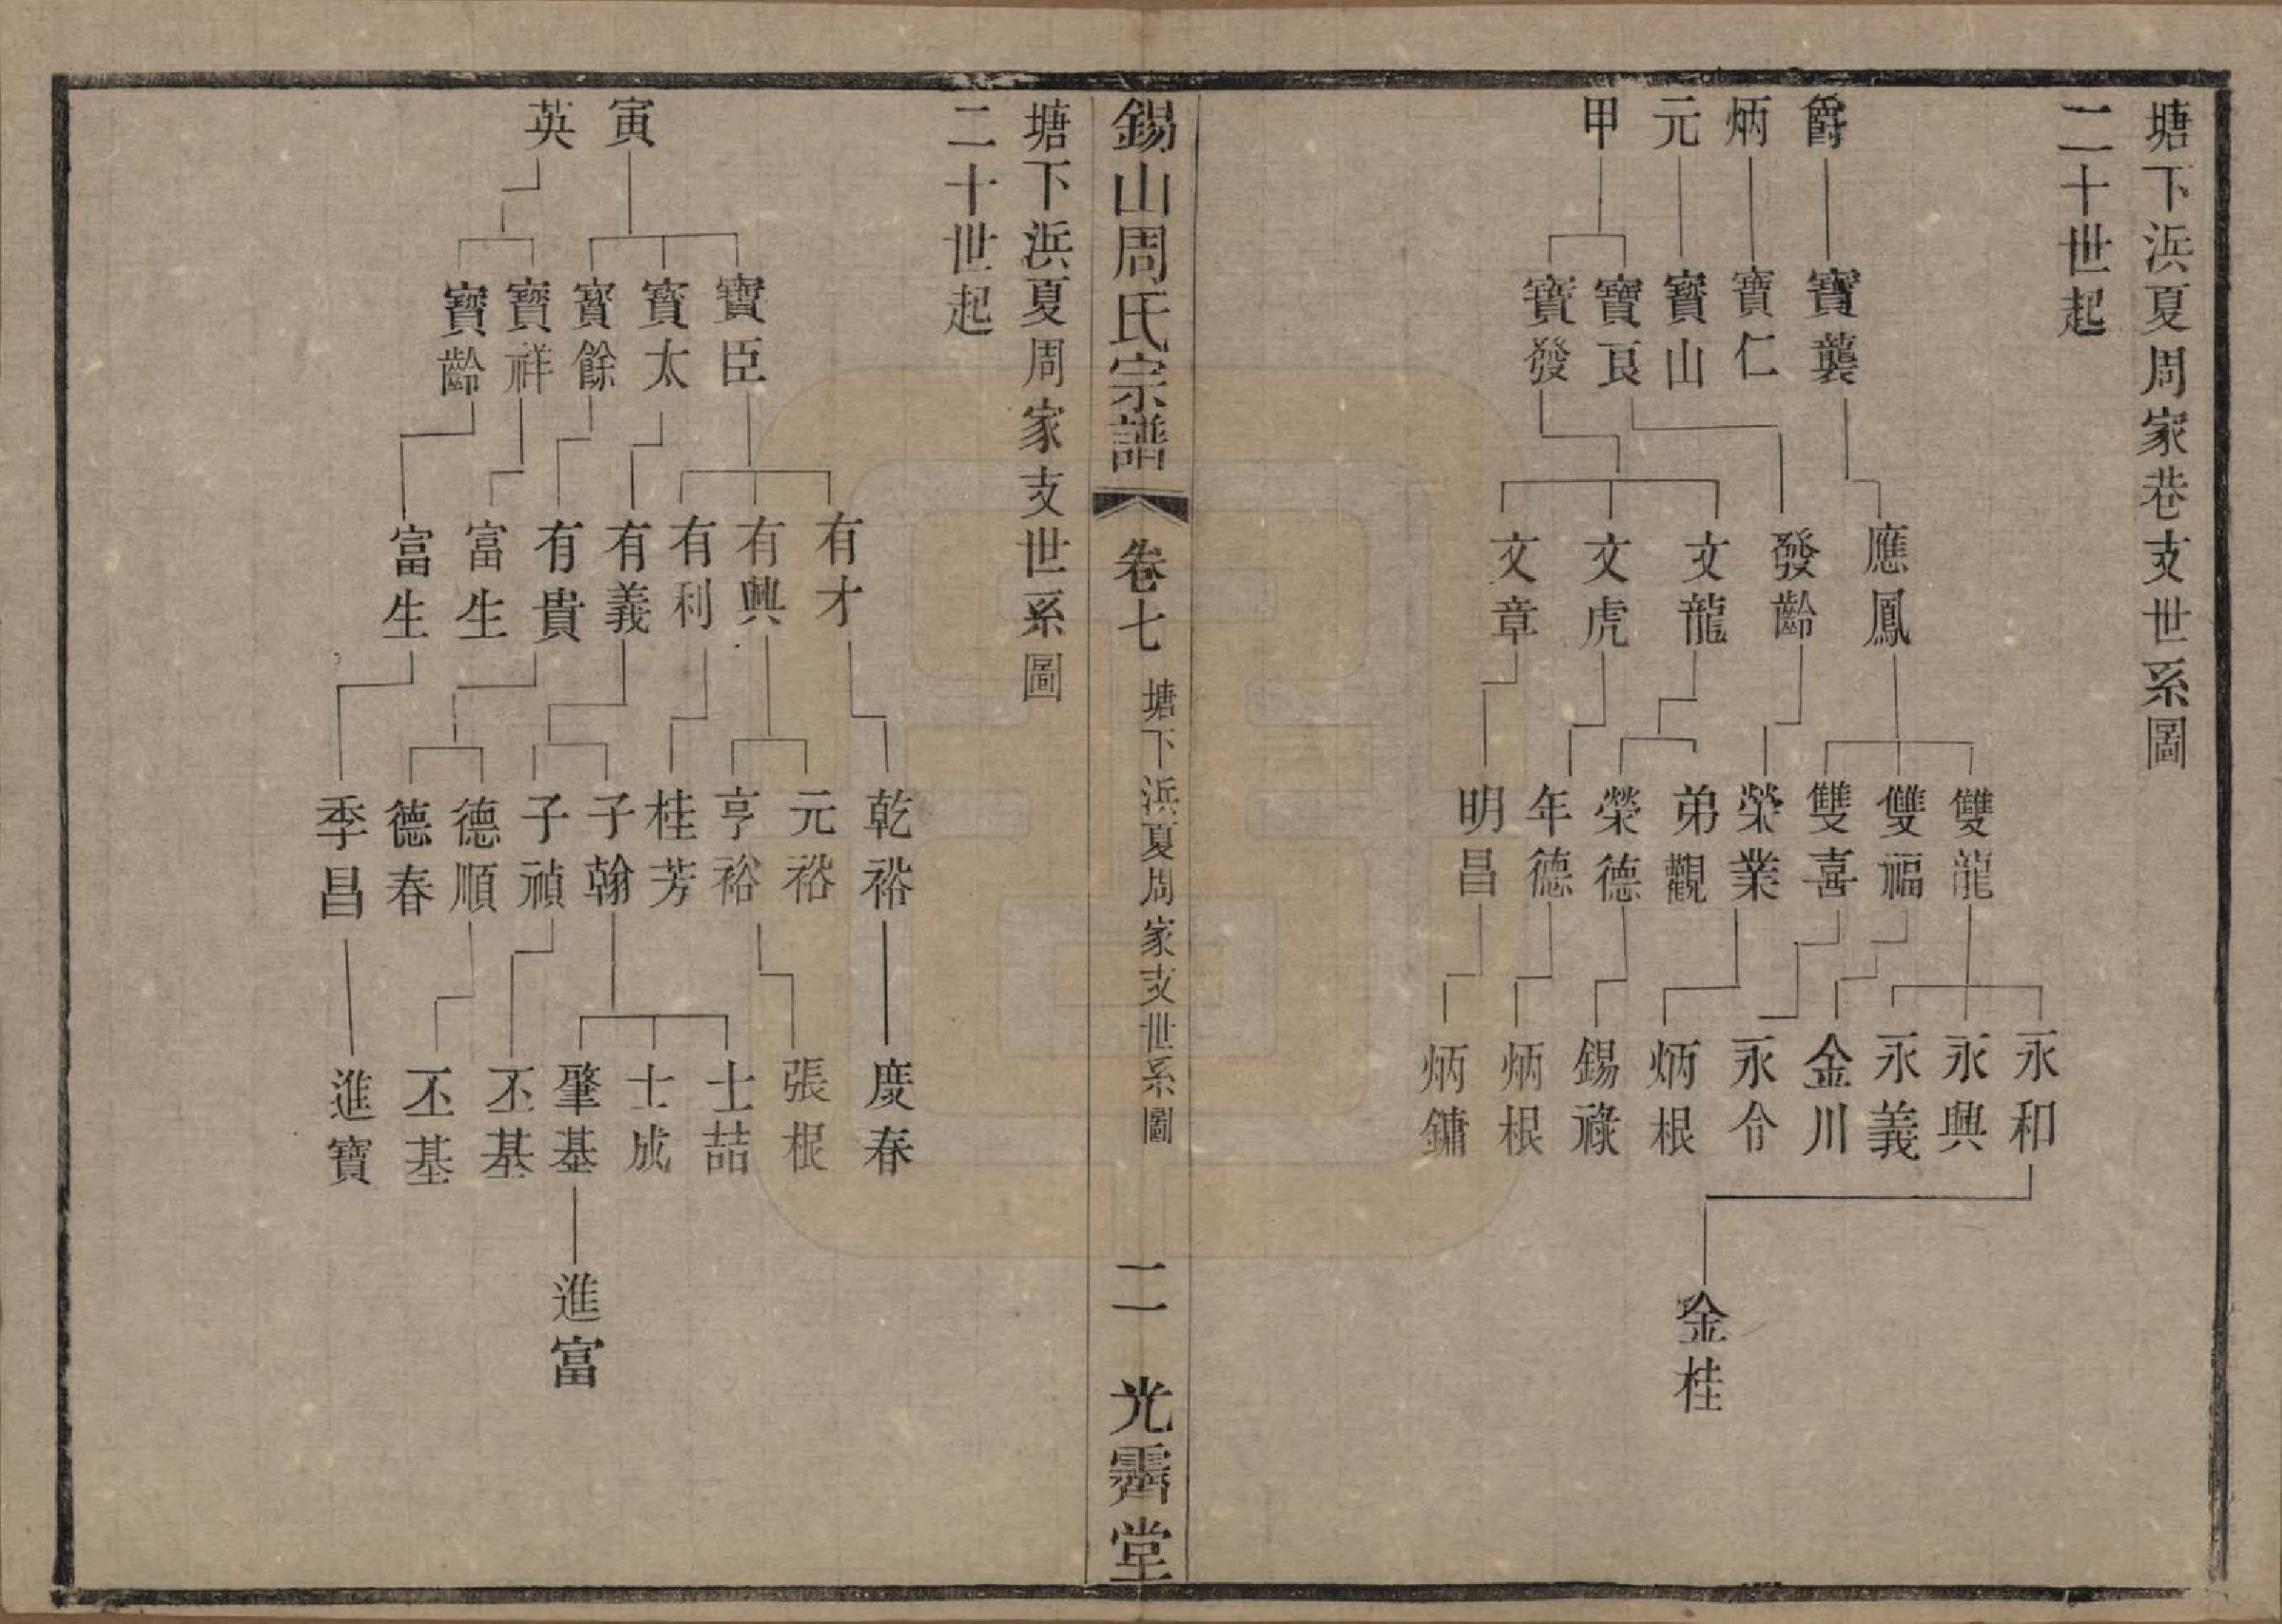 塘下浜夏周家巷支世系圖
二十世起
爵
炳
元
甲
寶襲
寶仁
寶山
寶艮
寶發
應鳳
發齡
文龍
文虎
文章
雙龍
雙福
雙喜
榮業
弟觀
榮德
年德
明昌
永和
永興
永義
金川
永令
炳根
錫祿
炳根
炳鏞
金桂
錫山周氏宗譜
卷七
塘下浜夏周家支世系圖
二
光霽堂
塘下浜夏周家支世系圖
二十世起
寅
英
寶臣
寶太
寶餘
寶祥
寶齡
有才
有興
有利
有義
有貴
富生
富生
乾裕
元裕
亨裕
桂芳
子翰
子禎
德順
德春
季昌
慶春
張根
士喆
士成
肇基
丕基
丕基
進寶
進富